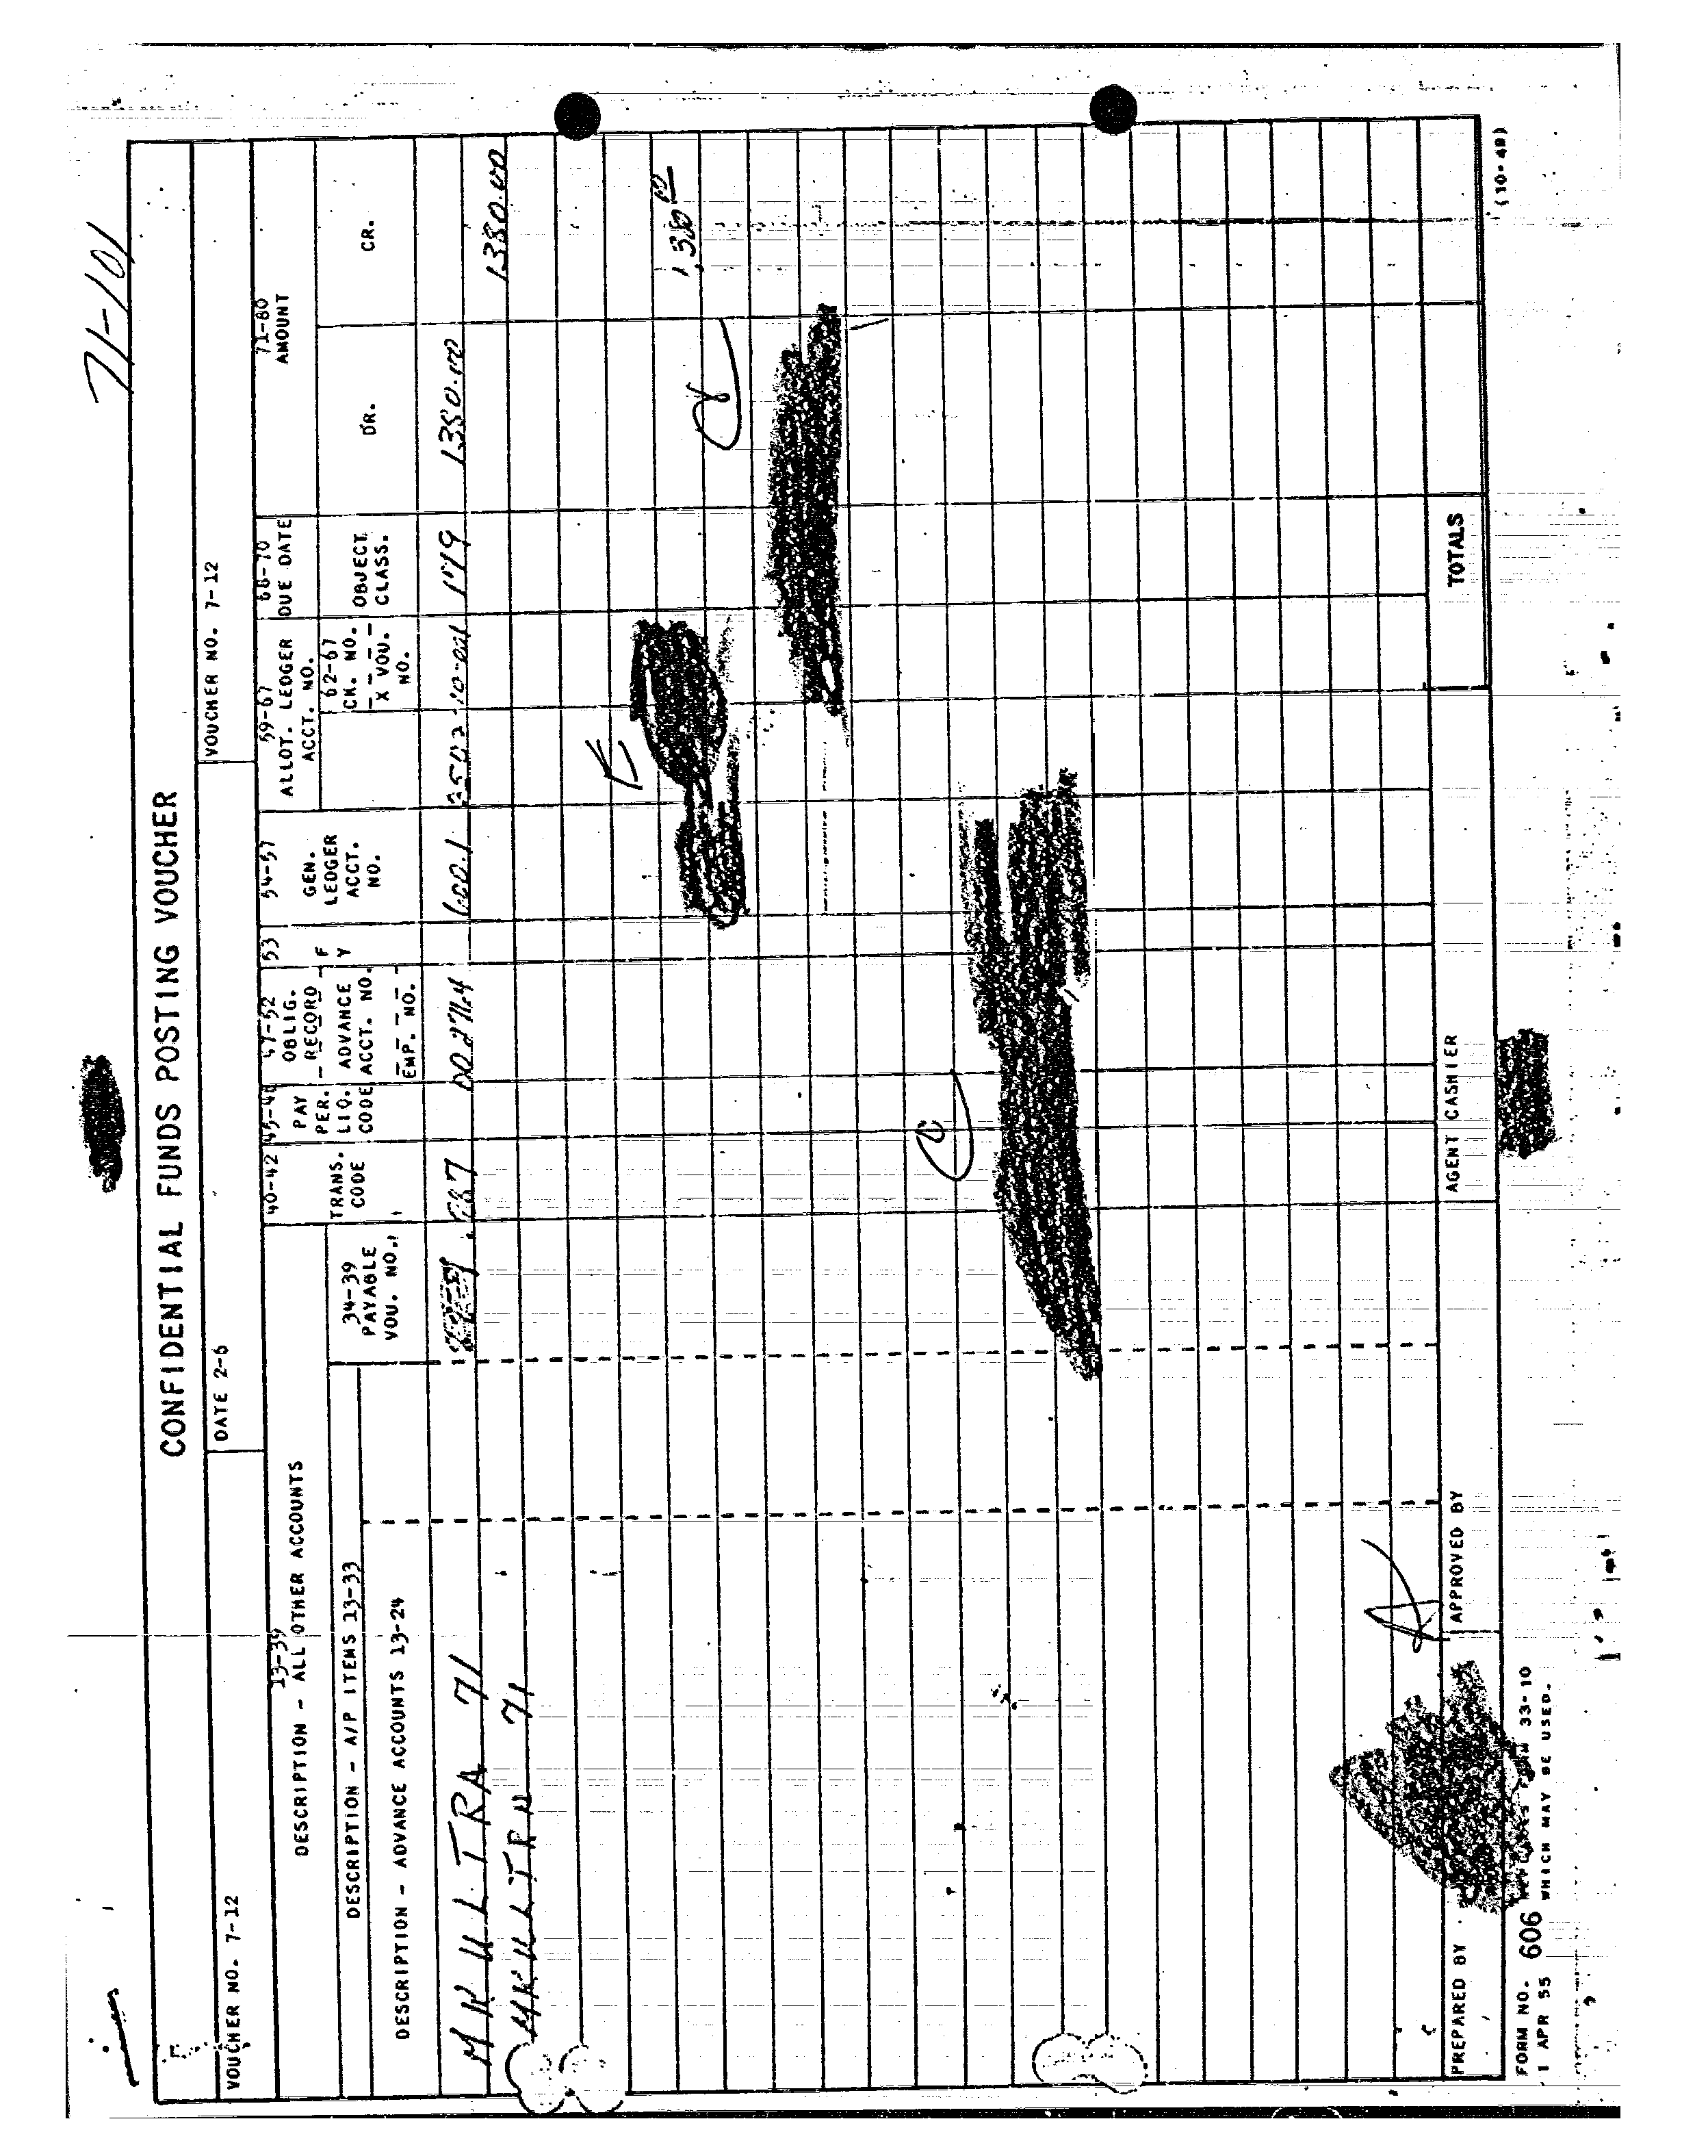 71-101
CONFIDENTIAL FUNDS POSTING VOUCHER
VOUCHER NO. 7-12 DATE 2-6 VOUCHER NO. 7-12
13-39 DESCRIPTION - ALL OTHER ACCOUNTS
DESCRIPTION - A/P ITEMS 13-33
DESCRIPTION - ADVANCE ACCOUNTS 13-24
34-39 PAYABLE VOU. NO.
40-42 TRANS. CODE
45-46 PAY PER. LIQ. CODE
47-52 OBLIG. RECORD ADVANCE ACCT. NO. EMP. NO.
53 F Y
54-57 GEN. LEDGER ACCT. NO.
59-67 ALLOT. LEDGER ACCT. NO.
62-67 CK. NO. X VOU. NO.
68-70 DUE DATE
OBJECT CLASS.
71-80 AMOUNT
DR. CR.
MKULTRA 71 600.1 1380.00
MKULTRA 71 1380.00
TOTALS
PREPARED BY APPROVED BY AGENT CASHIER
FORM NO. 606 33-10
1 APR 55 WHICH MAY BE USED.
(10-49)